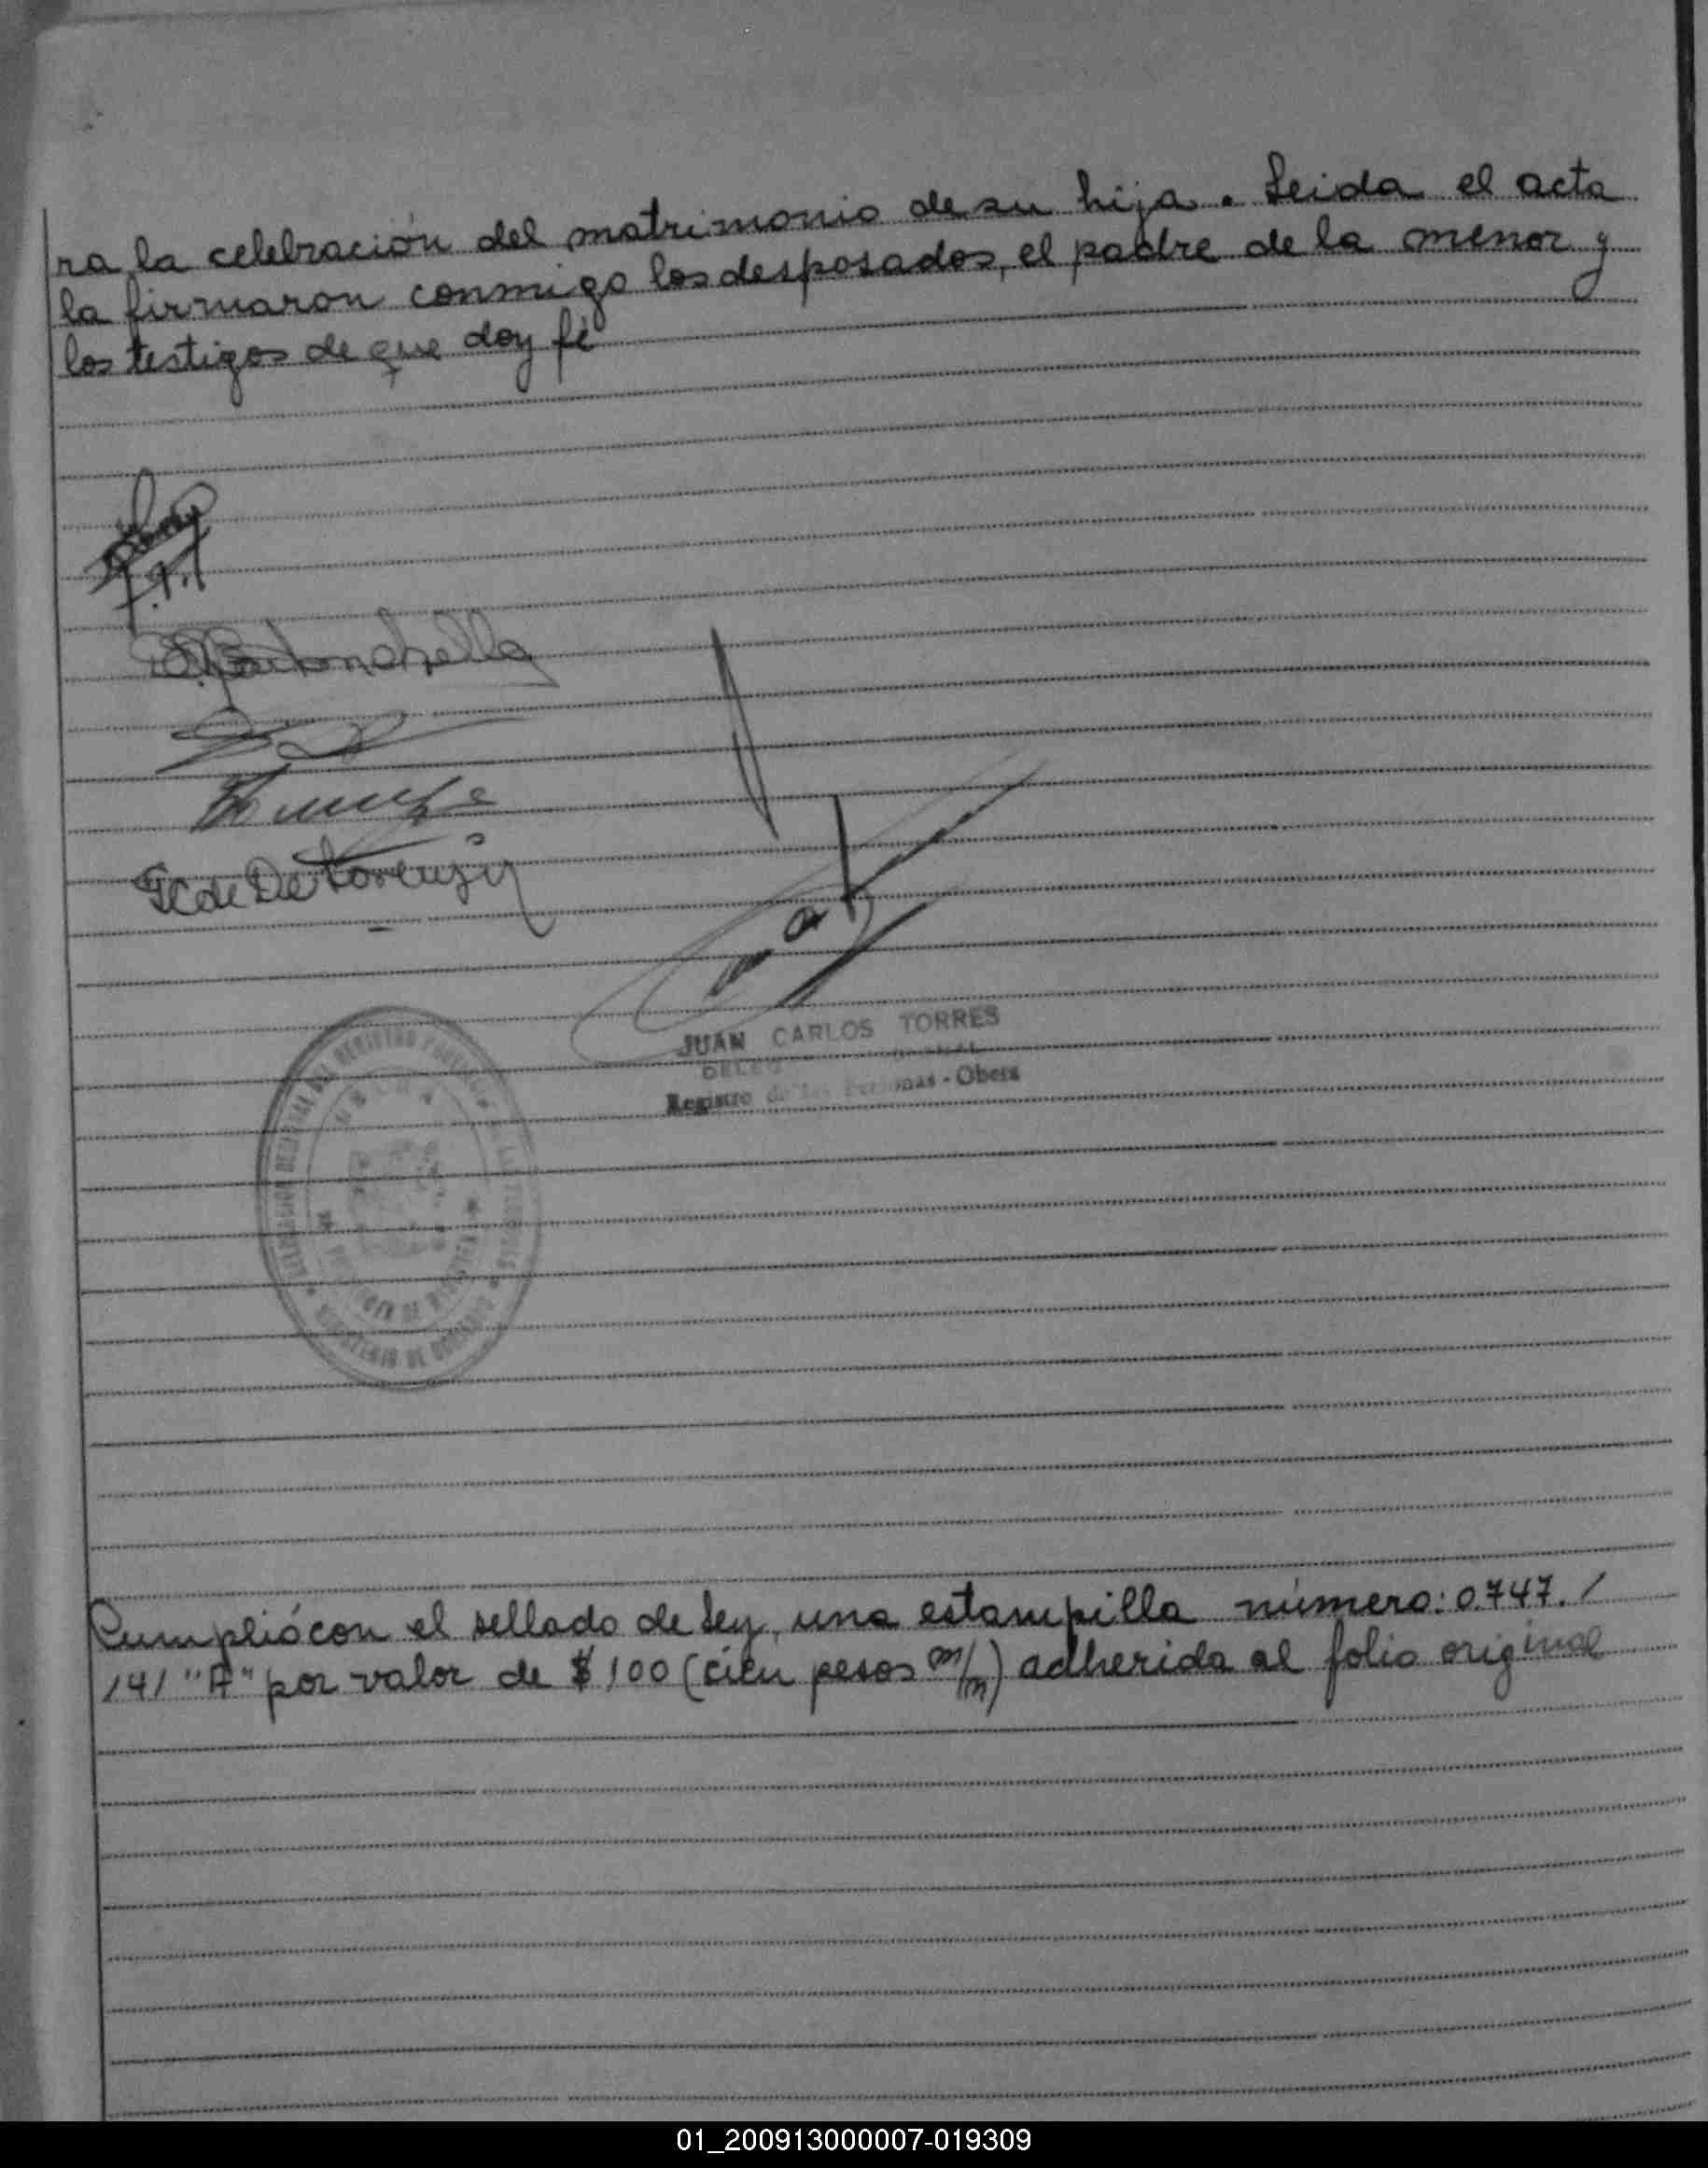 ra la celebración del matrimonio de su hija. Leida el acta
la firmaron conmigo los desposados, el padre de la menor y
los testigos de que doy fé
JUAN CARLOS TORRES
Registro de las Personas - Obera
MINISTERIO DE GOBIERNO
PROVINCIA DE MISIONES
Cumplió con el sellado de Ley, una estampilla número: 0747./
141 "A" por valor de $ 100 (cien pesos m/n) adherida al folio original
01_200913000007-019309